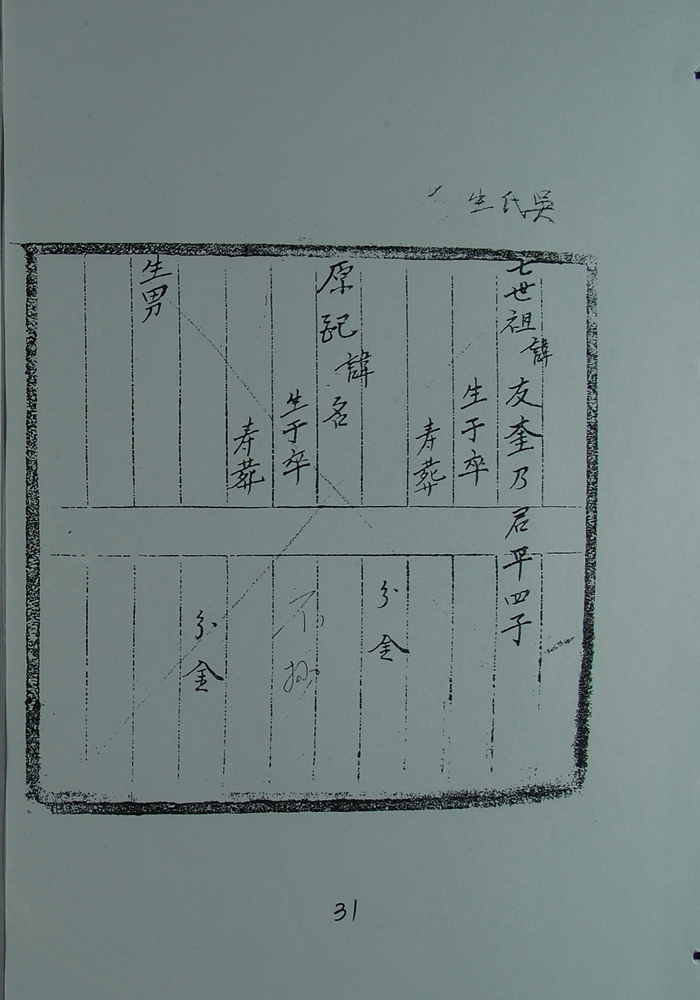 吳氏生
七世祖諱友奎乃君平四子
生于卒
寿葬
分金
原配諱名
生于卒
寿葬
分金
生男
31